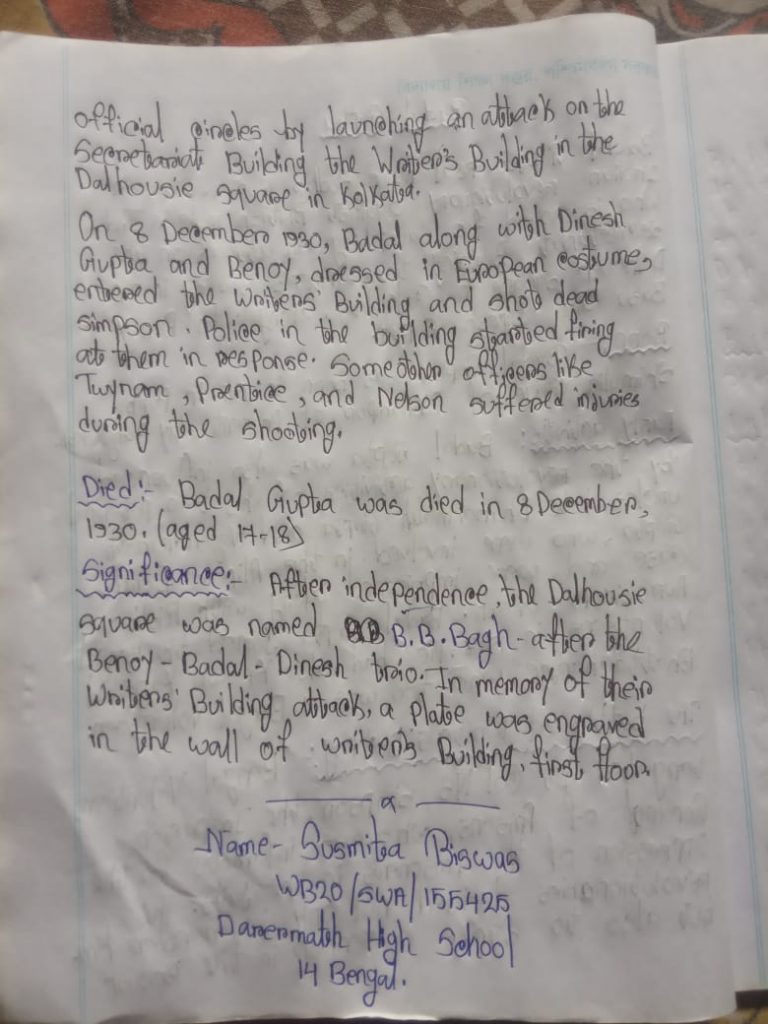 official circles by launching an attack on the
Secretariat Building the Writer's Building in the
Dalhousie square in Kolkata.
On 8 December 1930, Badal along with Dinesh
Gupta and Benoy, dressed in European costume,
entered the Writers' Building and shot dead
simpson. Police in the building started firing
at them in response. Some other officers like
Twynam, Prentice, and Nelson suffered injuries
during the shooting.
Died:- Badal Gupta was died in 8 December,
1930. (aged 17-18)
Significance:- After independence, the Dalhousie
square was named B.B.Bagh - after the
Benoy-Badal-Dinesh trio. In memory of their
Writers' Building attack, a plate was engraved
in the wall of writer's Building, first floor.
Name- Susmita Biswas
WB20/SWA/155425
High School
14 Bengal.